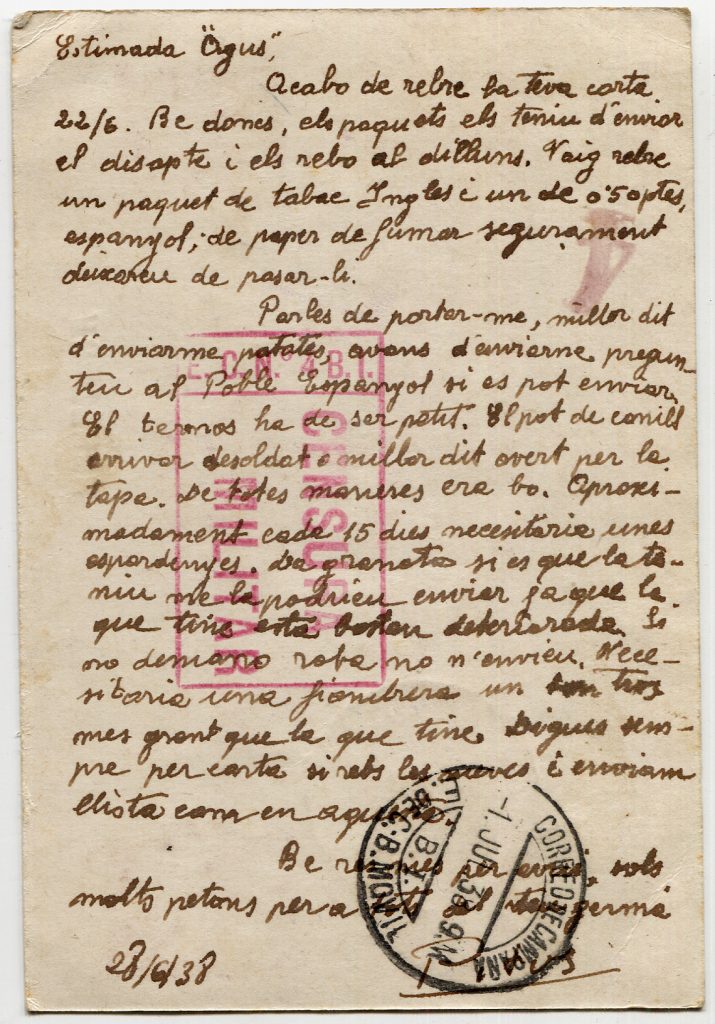 Estimada "Agus",
Acabo de rebre la teva carta
22/6. Be doncs, els paquets els teniu d'enviar
el disapte i els rebo al dilluns. Vaig rebre
un paquet de tabac Ingles i un de 0'50 ptes,
espanyol; de paper de fumar segurament
deixareu de pasar-li.
Parles de portar-me, millor dit
d'enviarme patates, avans d'enviarne pregun-
teu al Poble Espanyol si es pot enviar.
El termos ha de ser petit. El pot de conill
arrivar desoldat o millor dit overt per la
tapa. De totes maneres era bo. Aproxi-
madament cada 15 dies necesitaria unes
espardenyes. La granota si es que la te-
niu me la podrieu enviar ja que la
que tinc està bastan deteriorada. Si
no demano roba no n'envieu. Nece-
sitaria una fiambrera un
mes grant que la que tinc. Digues sem-
pre per carta si rebs les meves i enviam
llista com en
Be per avui, sols
molts petons per a del teu germá
28/6/38
E.C.N.º 4 B.I.
CENSURA
MILITAR
CORREO DE CAMPAÑA
-1. JUL 38. 9M